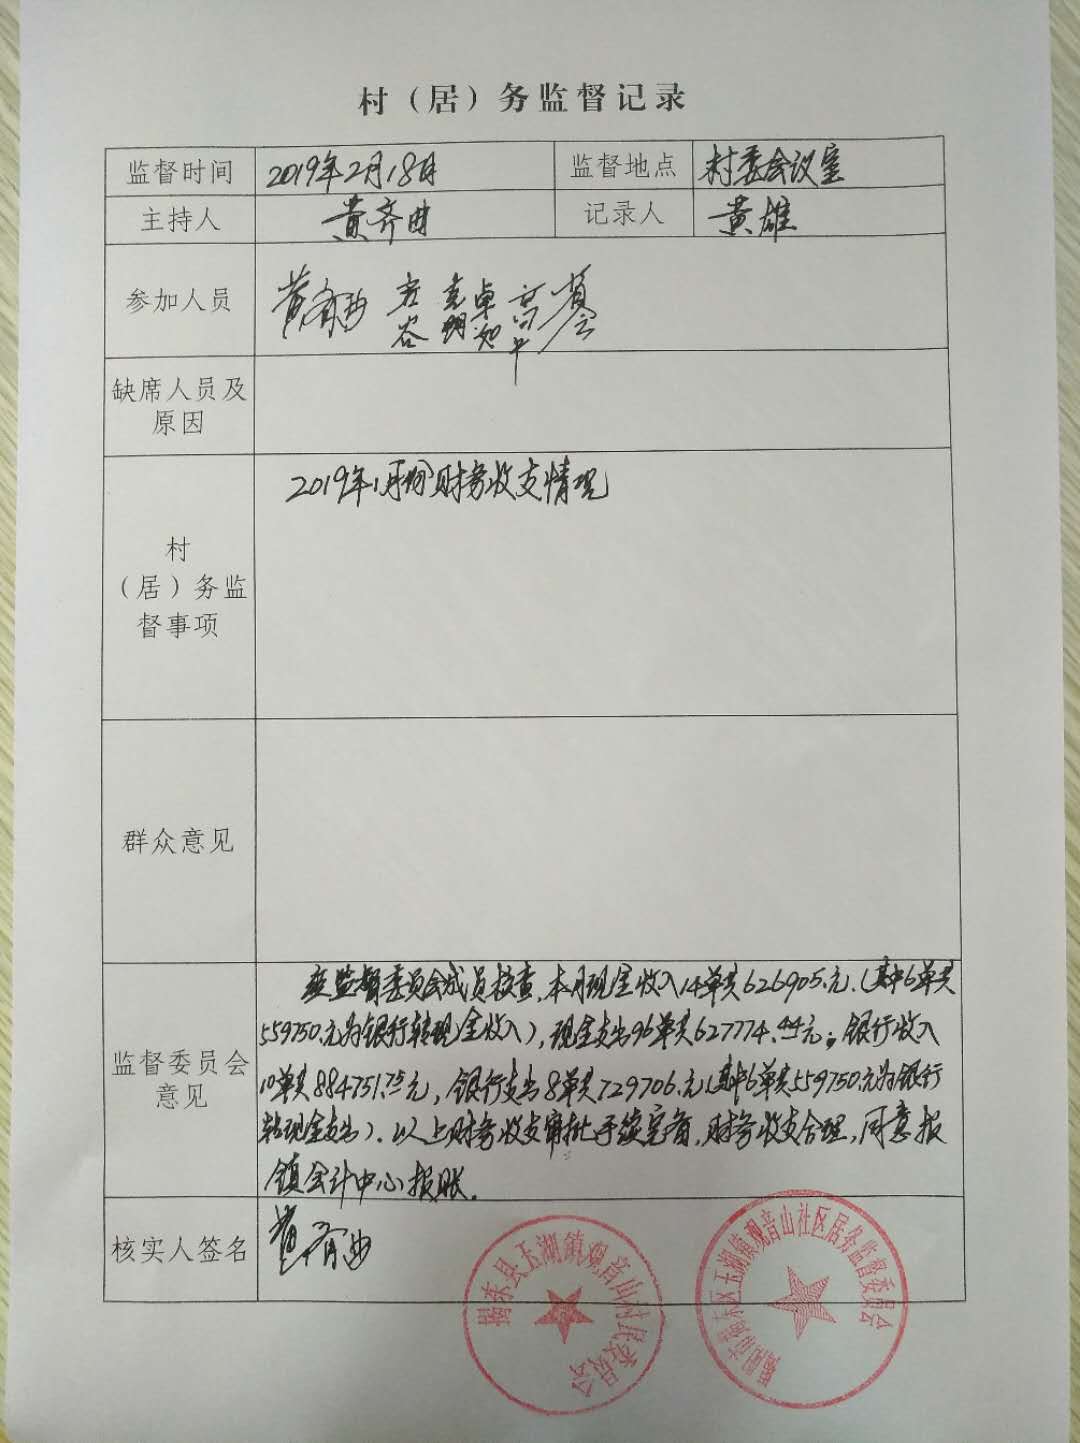 村（居）务监督记录
监督时间 2019年2月18日 监督地点 村委会议室
主持人 黄齐曲 记录人 黄雄
参加人员
缺席人员及
原因
村
（居）务监
督事项
2019年1月份财务收支情况
群众意见
监督委员会
意见
经监督委员会成员核查，本月现金收入14单共626905.元.（其中6单共
559750.元为银行转现金收入），现金支出96单共627774.44元；银行收入
10单共884751.75元，银行支出8单共729706.元（其中6单共559750.元为银行
转现金支出）．以上财务收支审批手续完备，财务收支合理，同意报
镇会计中心报账．
核实人签名
揭东县玉湖镇观音山村民委员会
揭阳市揭东区玉湖镇观音山社区居务监督委员会